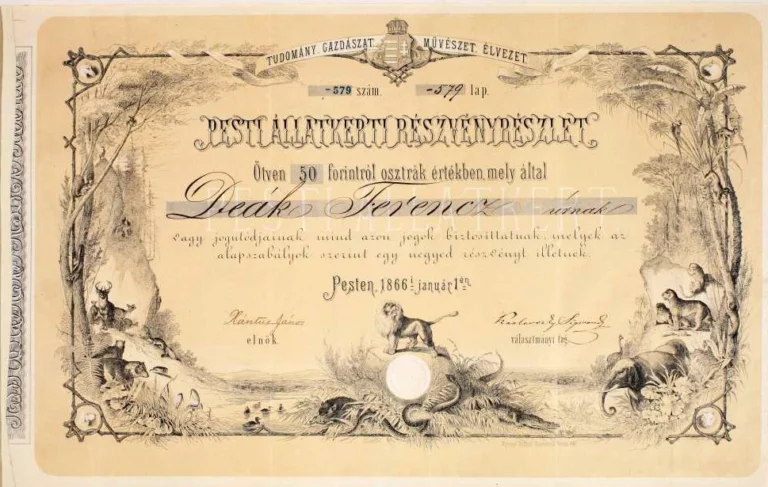 TUDOMÁNY. GAZDÁSZAT. MŰVÉSZET. ÉLVEZET.
-579 szám. -579 lap.
PESTI ÁLLATKERTI RÉSZVÉNYRÉSZLET
Ötven 50 forintról osztrák értékben, mely által
Deák Ferencz úrnak
vagy jogutódjainak mind azon jogok biztosíttatnak, melyek az
alapszabályok szerint egy negyed részvényt illetnek.
Pesten, 1866 i január 1én.
Xántus János
elnök.
választmányi tag.